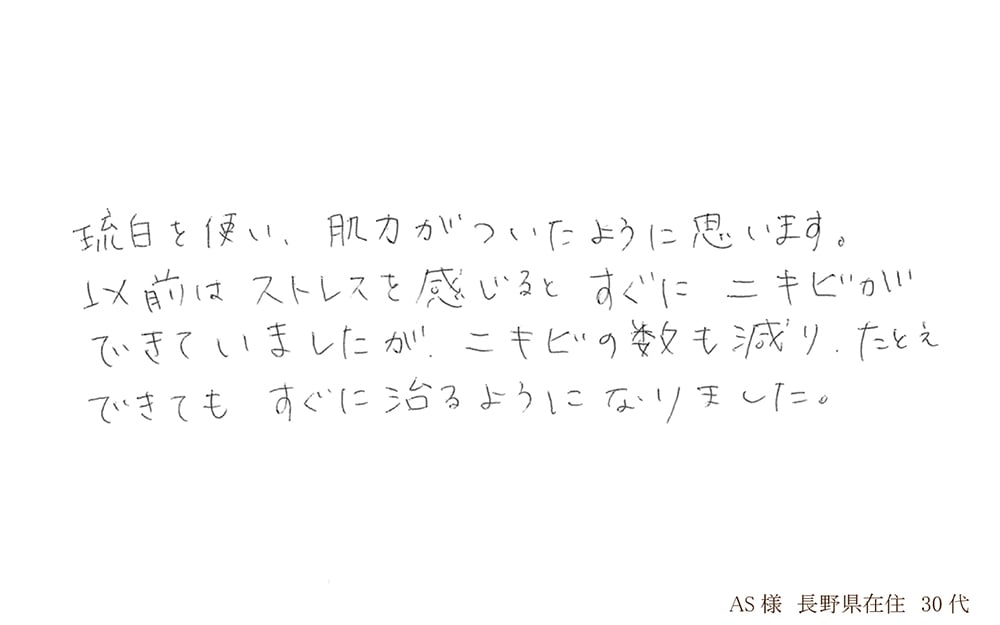 琉白を使い、肌力がついたように思います。
以前はストレスを感じるとすぐにニキビが
できていましたが、ニキビの数も減り、たとえ
できてもすぐに治るようになりました。
AS様 長野県在住 30代